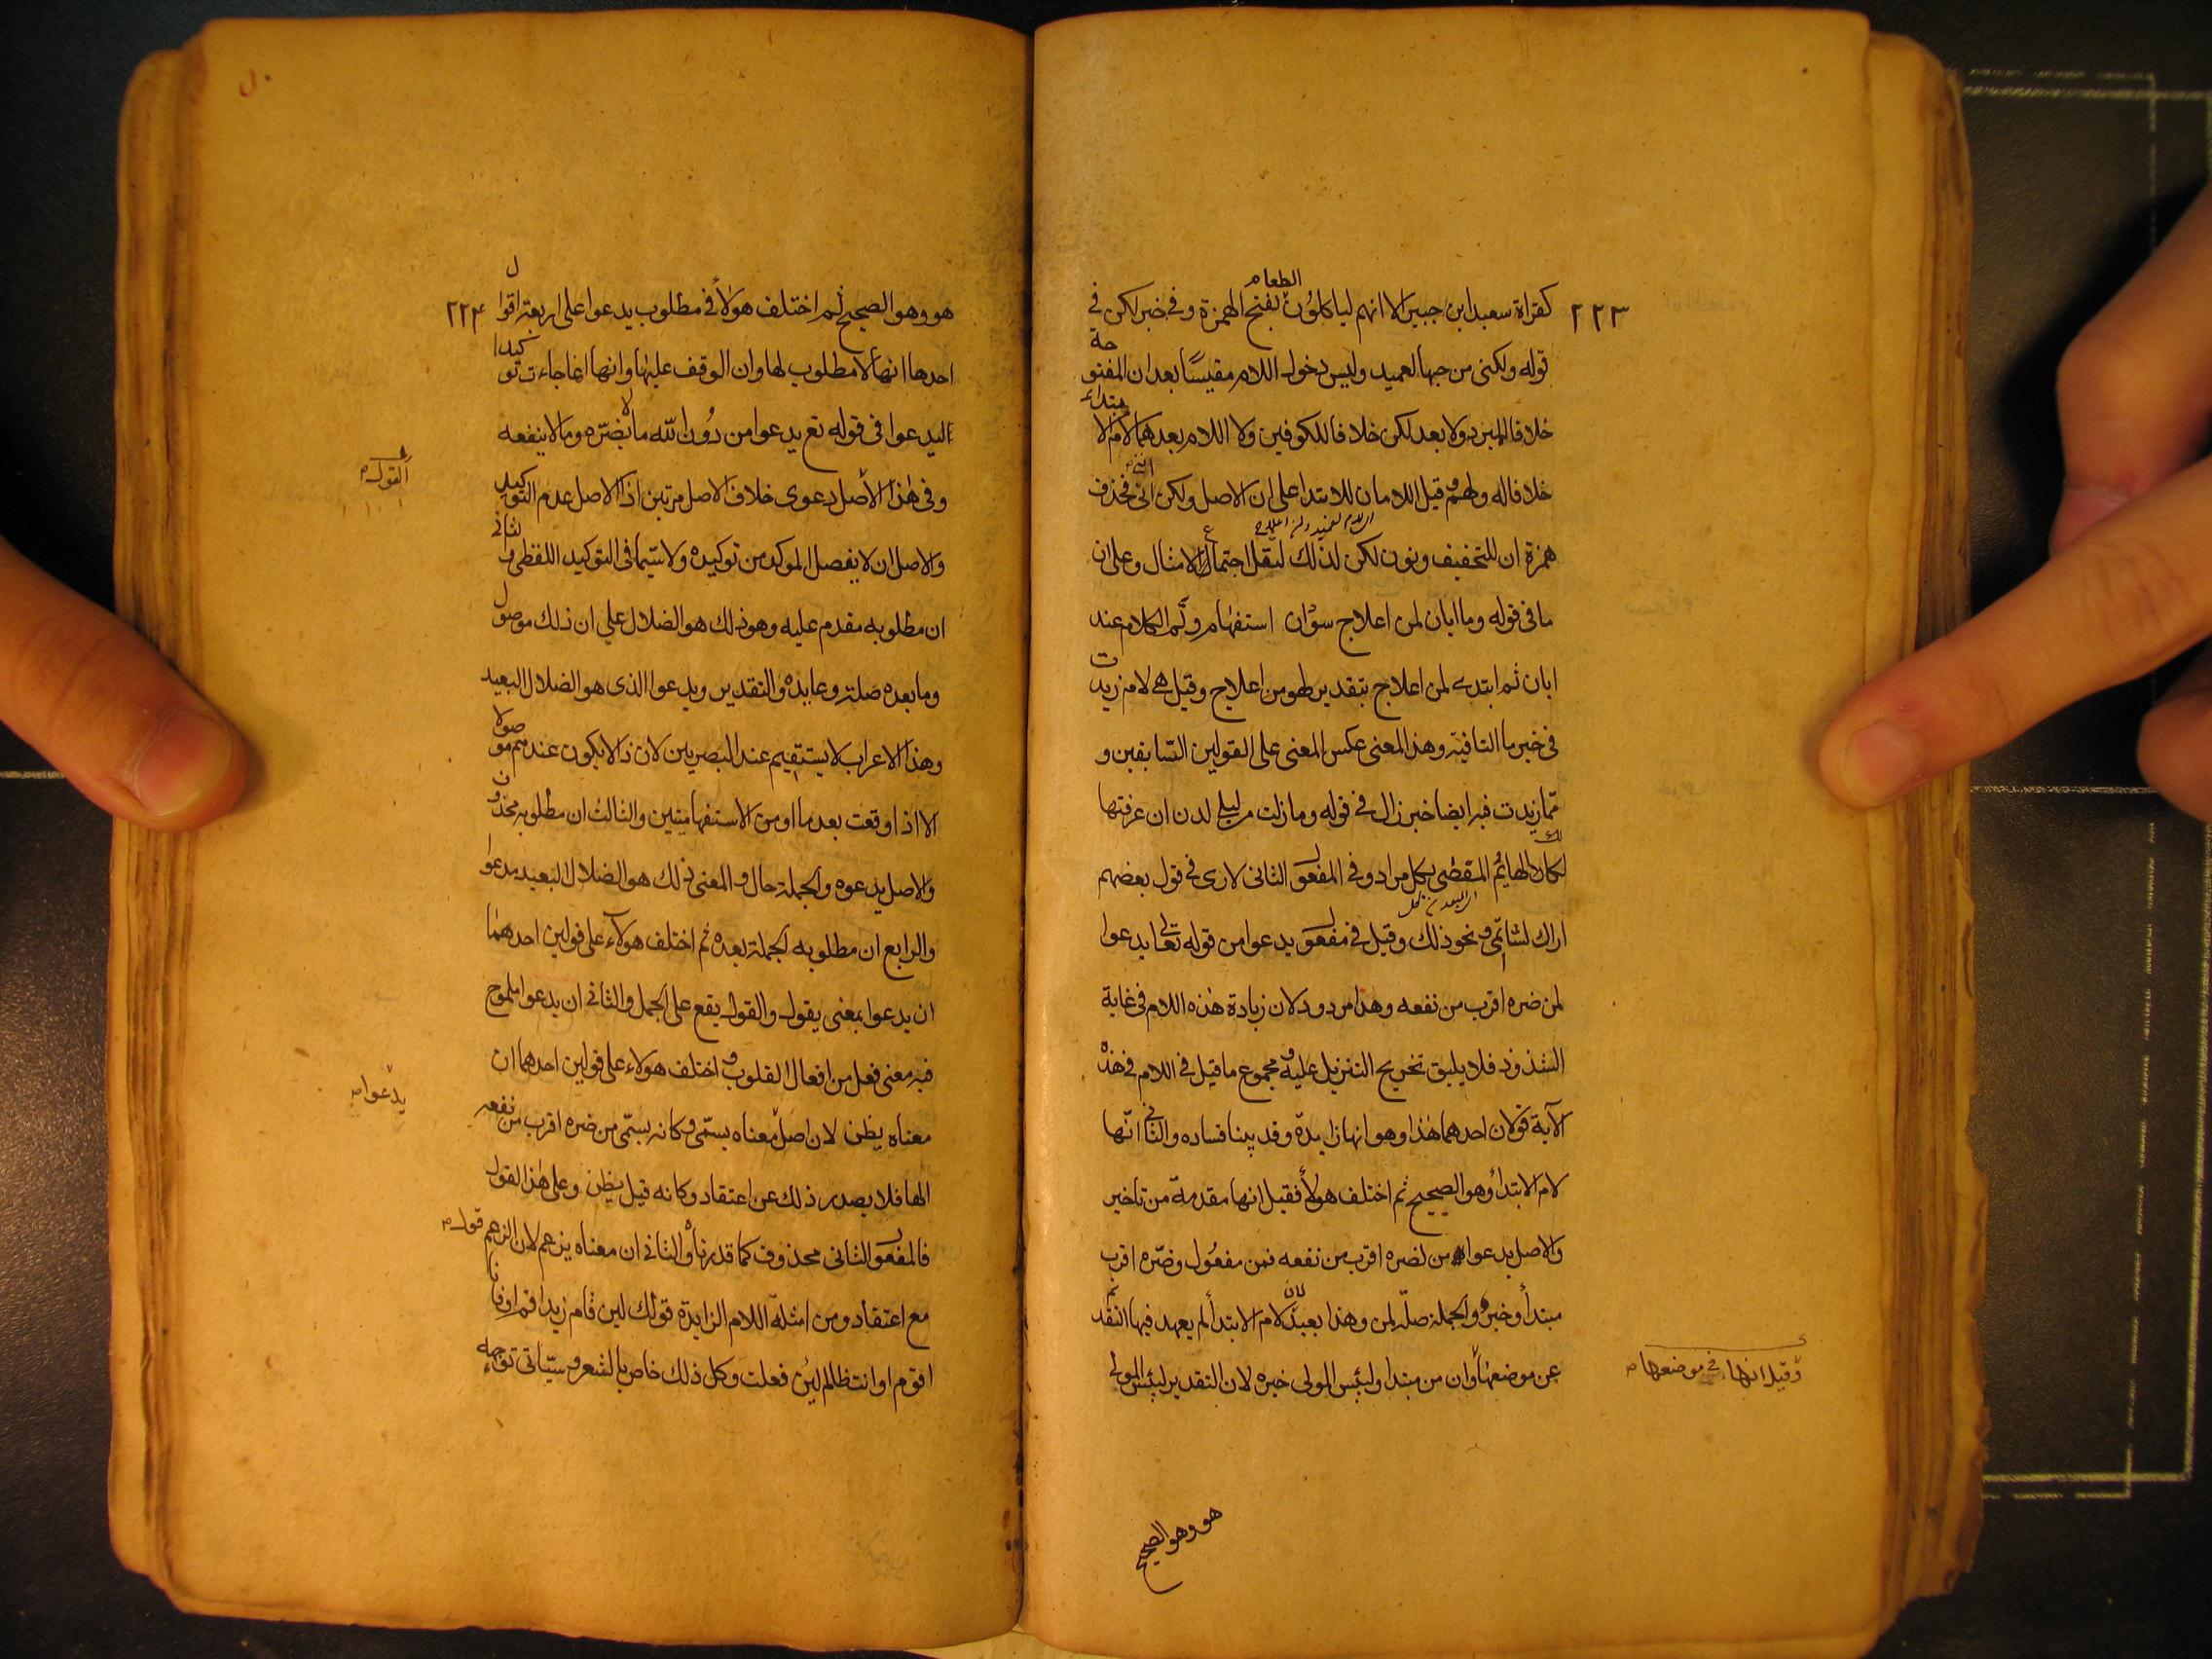 ٢٢٣
الطعام
كقراة سعيد ابن جبير الا انهم لياكلون بفتح الهمزة وفي خبر لكن في
قوله ولكنى من حبها لعميد وليس دخول اللام مقيسًا بعد ان المفتوحة
خلافا للمبرد ولا بعد لكن خلافا للكوفين ولا اللام بعدهما لام الابتداء
خلافا له ولهم وقيل اللامان للابتدا على ان الاصل ولكن اننى فحذف
همزة ان للتخفيف ونون لكن لذلك لثقل اجتماع الامثال وعلى ان
ما في قوله وما ابان لمن اعلاج سؤان استفهام وتم الكلام عند
ابان ثم ابتدے لمن اعلاج بتقدير لهو من اعلاج وقيل هي لام زيدت
في خبر ما النافية وهذا المعنى عكس المعنى على القولين السابقين و
ممّا زيدت فيه ايضا خبر زال في قوله وما زلت من ليلي لدن ان عرفتها
لكالهايم المقصى بكل مراد وفي المفعول الثانى لارى في قول بعضهم
اراك لشاتمى ونحو ذلك وقيل في مفعول يدعوا من قوله تعالى يدعوا
لمن ضره اقرب من نفعه وهذا مردود لان زيادة هذه اللام في غاية
الشذوذ فلا يليق تخريج التنزيل عليه ومجموع ما قيل في اللام في هذه
الآية قولان احدهما هذا وهو انها زايدة وقد بينا فساده والثانى انّها
لام الابتدأ وهو الصحيح ثم اختلف هولأ فقيل انها مقدمة من تاخير
والاصل يدعوا من لضره اقرب من نفعه فمن مفعول وضرّه اقرب
مبتدأ وخبر والجملة صلة لمن وهذا بعيد لان لام الابتدأ لم يعهد فيها التقدم
عن موضعها وان من مبتدا ولبئس المولى خبره لان التقدير لبئس المولى
وقيل انها في موضعها
هو وهو الصحيح
٢٢٤
هو وهو الصحيح ثم اختلف هولأ في مطلوب يدعوا على اربعة اقوال
احدها انها لا مطلوب لها وان الوقف عليها وانها انما جاءت توكيدا
ليدعوا في قوله تع يدعوا من دون الله ما لا يضرّه وما لا ينفعه
القول
وفي هذا الاصل دعوى خلاف الاصل مرتين اذ الاصل عدم التوكيد
والاصل ان لا يفصل الموكد من توكيده ولا سيّما في التوكيد اللفظى والثانى
ان مطلوبه مقدم عليه وهو ذلك هو الضلال على ان ذلك موصول
وما بعده صلة وعايده والتقدير ويدعوا الذى هو الضلال البعيد
وهذا الاعراب لا يستقيم عند البصريين لان ذا لا يكون عندهم موصولا
الا اذا وقعت بعد ما او من الاستفهاميتين والثالث ان مطلوبه محذوف
والاصل يدعوه والجملة حال والمعنى ذلك هو الضلال البعيد مدعوا
والرابع ان مطلوبه الجملة بعده ثم اختلف هولآء على قولين احدهما
ان يدعوا بمعنى يقول والقول يقع على الجمل والثانى ان يدعوا ملموح
فيه معنى فعل من افعال القلوب و اختلف هولاء على قولين احدهما ان
يدعوا
معناه يظن لان اصل معناه يسمّى وكانه يسمّى من ضره اقرب من نفعه
الها فلا يصدر ذلك عن اعتقاد وكانه قيل يظن وعلى هذا القول
فالمفعول الثانى محذوف كما قدرناه والثانى ان معناه يزعم لان الزعم قول
مع اعتقاد ومن امثلة اللام الزايدة قولك لين قام زيدا قم او فانا
اقوم او انت ظالم لين فعلت وكل ذلك خاص بالشعر وسيّاتى توجيهه